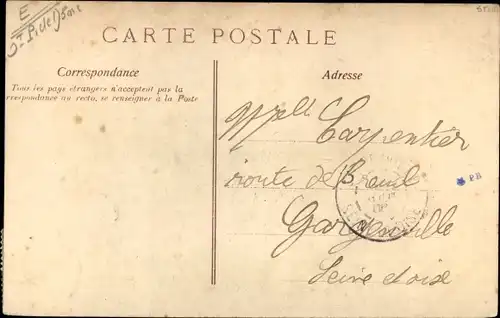 CARTE POSTALE
Correspondance
Tous les pays étrangers n'acceptent pas la
correspondance au recto, se renseigner à la Poste
Adresse
Mlle Carpentier
route de Breuil
Gargenville
Seine et oise
PB